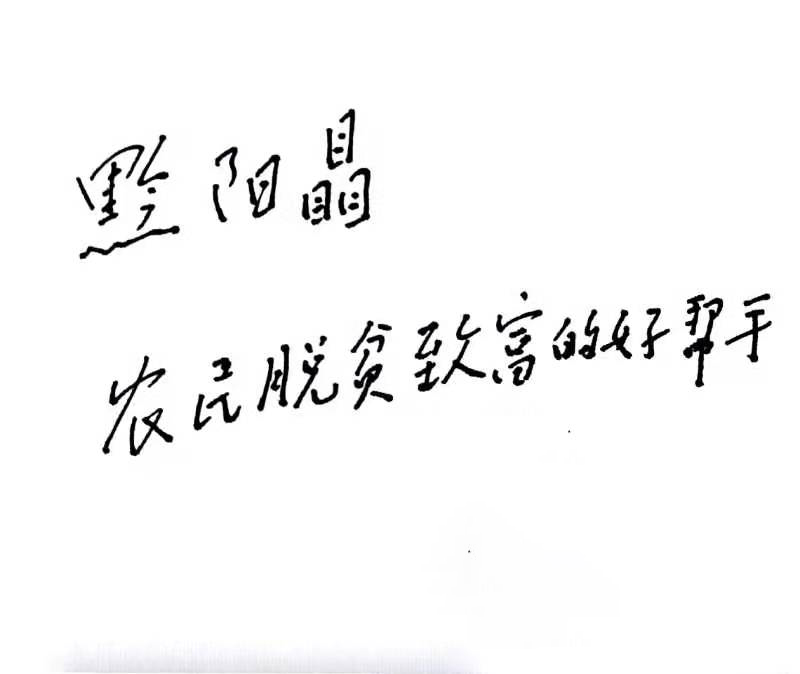 黔阳晶
农民脱贫致富的好帮手